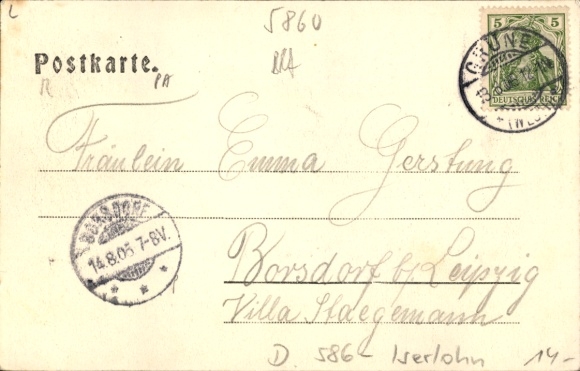 L
5860
5 5
DEUTSCHES REICH
GRÜNE
Postkarte.
R PA
Fräulein Emma Gerstung
BORSDORF
14.8.05 7-8V.
Borsdorf b/Leipzig
Villa Staegemann
D. 586- Iserlohn 14.-